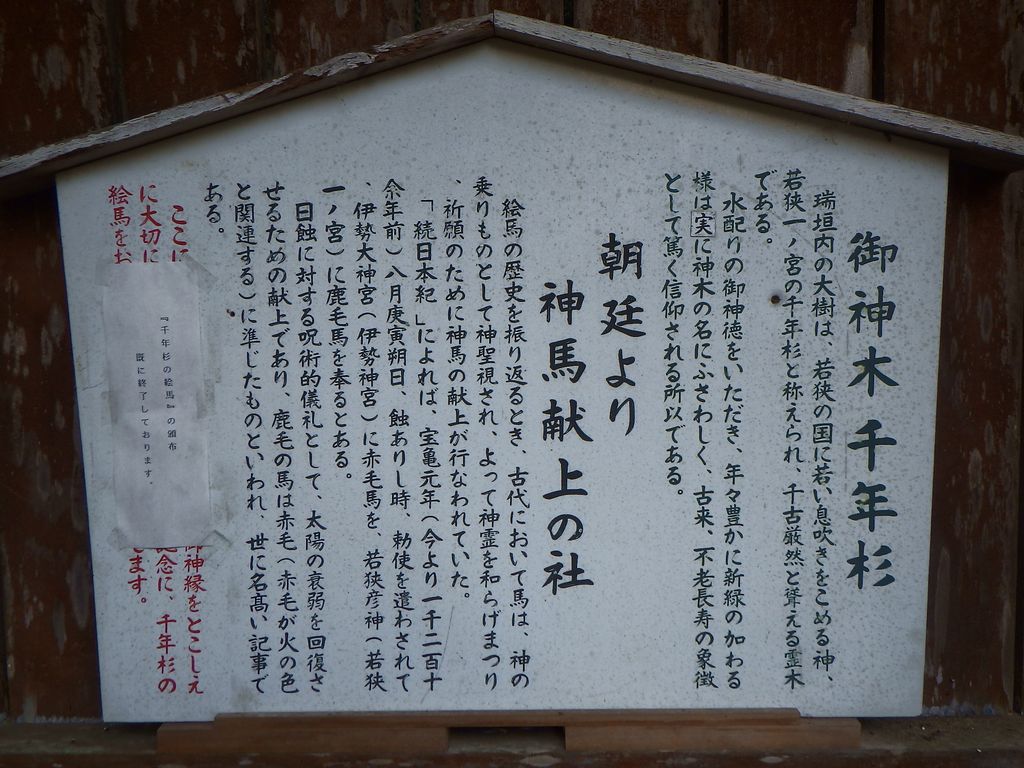 御神木千年杉
瑞垣内の大樹は、若狭の国に若い息吹きをこめる神、
若狭一ノ宮の千年杉と称えられ、千古厳然と聳える霊木
である。
水配りの御神徳をいただき、年々豊かに新緑の加わる
様は実に神木の名にふさわしく、古来、不老長寿の象徴
として篤く信仰される所以である。
朝廷より
神馬献上の社
絵馬の歴史を振り返るとき、古代において馬は、神の
乗りものとして神聖視され、よって神霊を和らげまつり
、祈願のために神馬の献上が行なわれていた。
「続日本紀」によれば、宝亀元年（今より一千二百十
余年前）八月庚寅朔日、蝕ありし時、勅使を遣わされて
、伊勢大神宮（伊勢神宮）に赤毛馬を、若狭彦神（若狭
一ノ宮）に鹿毛馬を奉るとある。
日蝕に対する呪術的儀礼として、太陽の衰弱を回復さ
せるための献上であり、鹿毛の馬は赤毛（赤毛が火の色
と関連する）に準じたものといわれ、世に名高い記事で
ある。
ここに
御神縁をとこしえ
に大切に
念に、千年杉の
絵馬をお
ます。
『千年杉の絵馬』の頒布
既に終了しております。